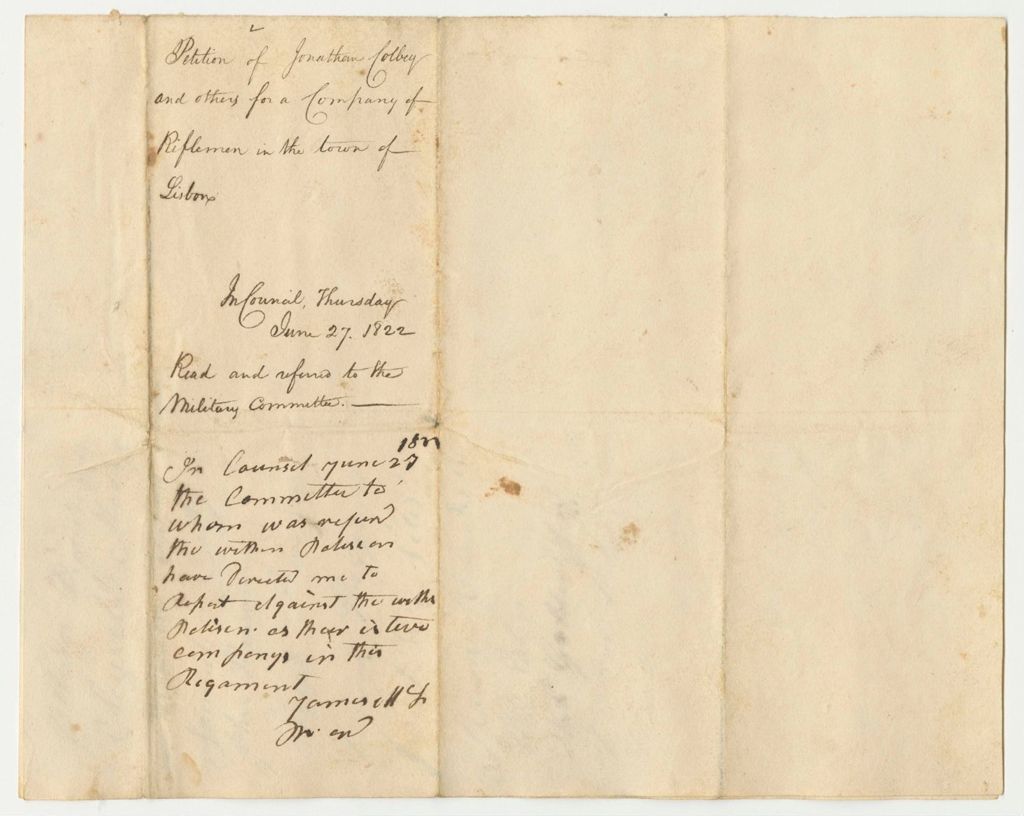 Petition of Jonathan Colbey
and others for a Company of
Riflemen in the town of
Lisbon
In Council, Thursday
June 27. 1822
Read and referred to the
Military Committee.
1822
In Counsel June 27
the Committee to
whom was refured
the within Petision
have Directed me to
Report Against the within
Petision as thear is two
companys in this
Regament
James